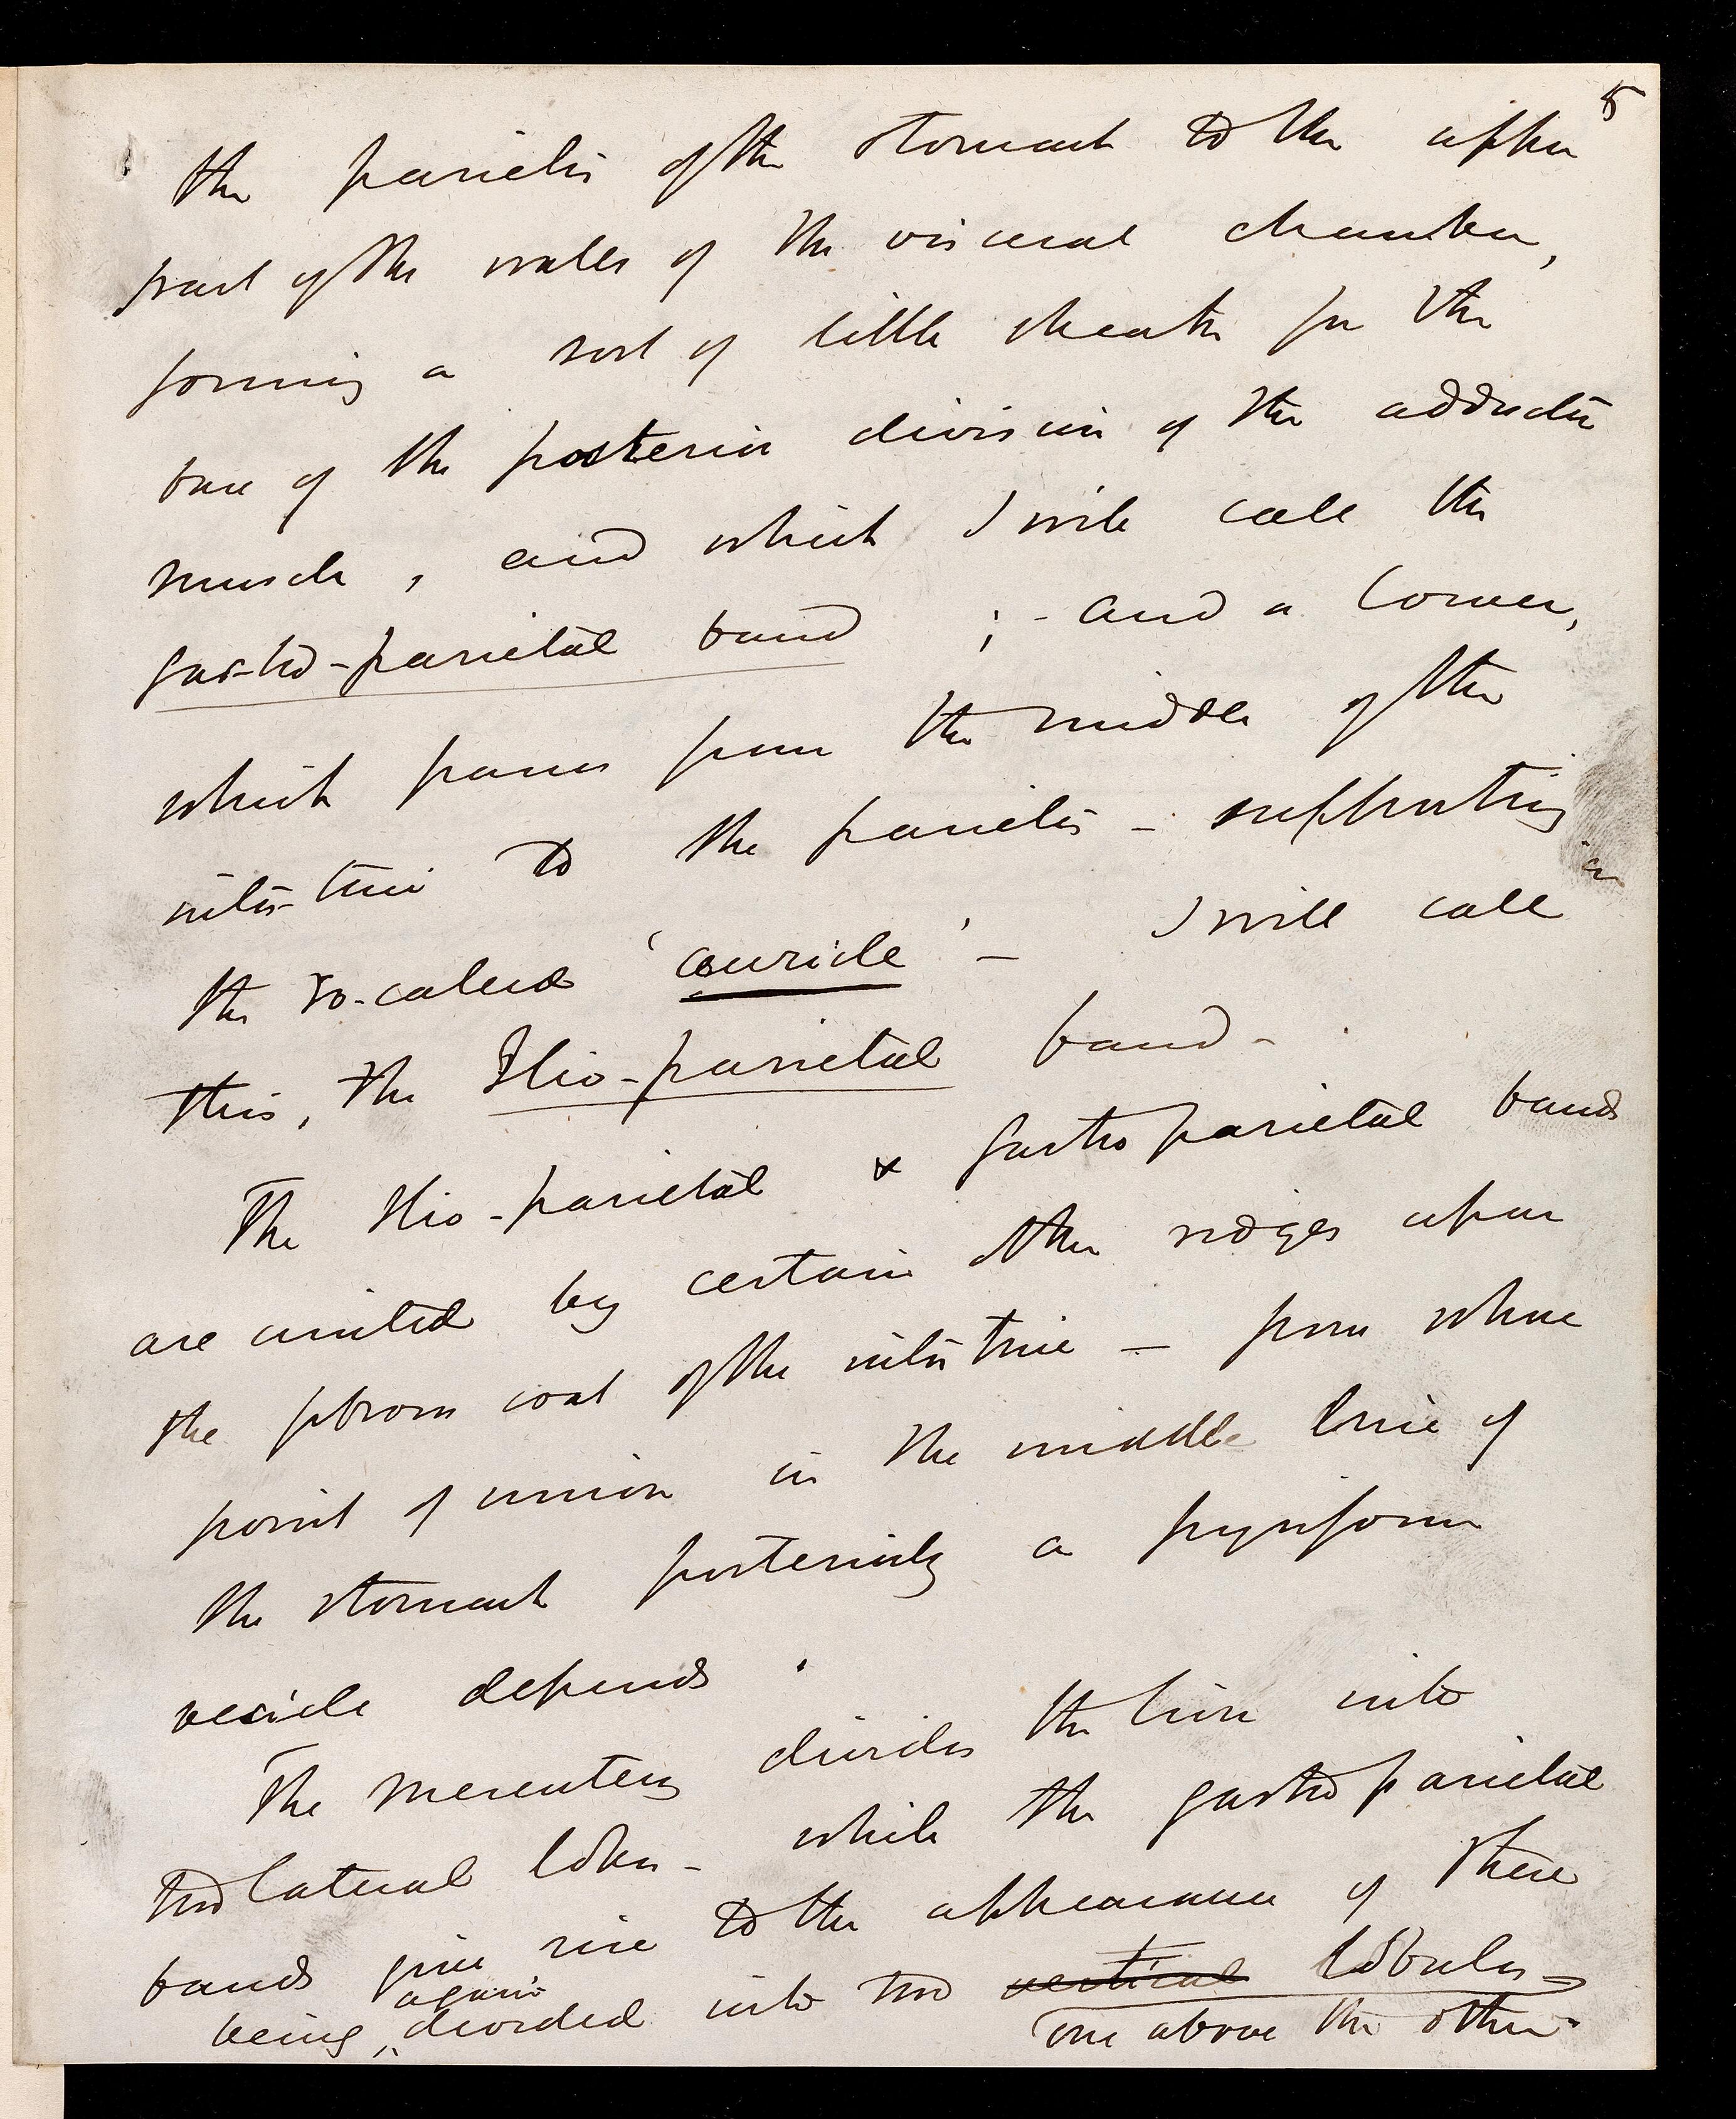 5
the parietes of the stomach to the upper
part of the walls of the visceral chamber,
forming a sort of little sheath for the
base of the posterior division of the adductor
muscle, and which I will call the
gastro-parietal band ; - and a lower,
which passes from the middle of the
intestine to the parietes - supporting
as
the so-called 'auricle' - I will call
this, the Ilio-parietal band -
The Ilio-parietal & gastro parietal bands
are united by certain other ridges upon
the fibrous coat of the intestine - from whose
point of union in the middle line of
the stomach posteriorly a pyriform
vesicle depends.
The mesentery divides the liver into
two lateral lobes - while the gastro parietal
bands give rise to the appearance of these
again
being ^ divided into two vertical lobules =
one above the other.